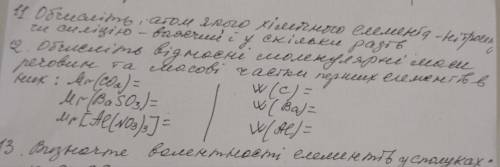 11 Обчисліть, атом якого хімічного елемента - нітрогену
чи силіцію - важчий і у скільки разів
12. Обчисліть відносні молекулярні маси
речовин та масові частки перших елементів в
них : Mr(CO₂)= W(C)=
Mr(BaSO₃)= W(Ba)=
Mr[Al(NO₃)₃]= W(Al)=
13. Визначте валентності елементів у сполуках.